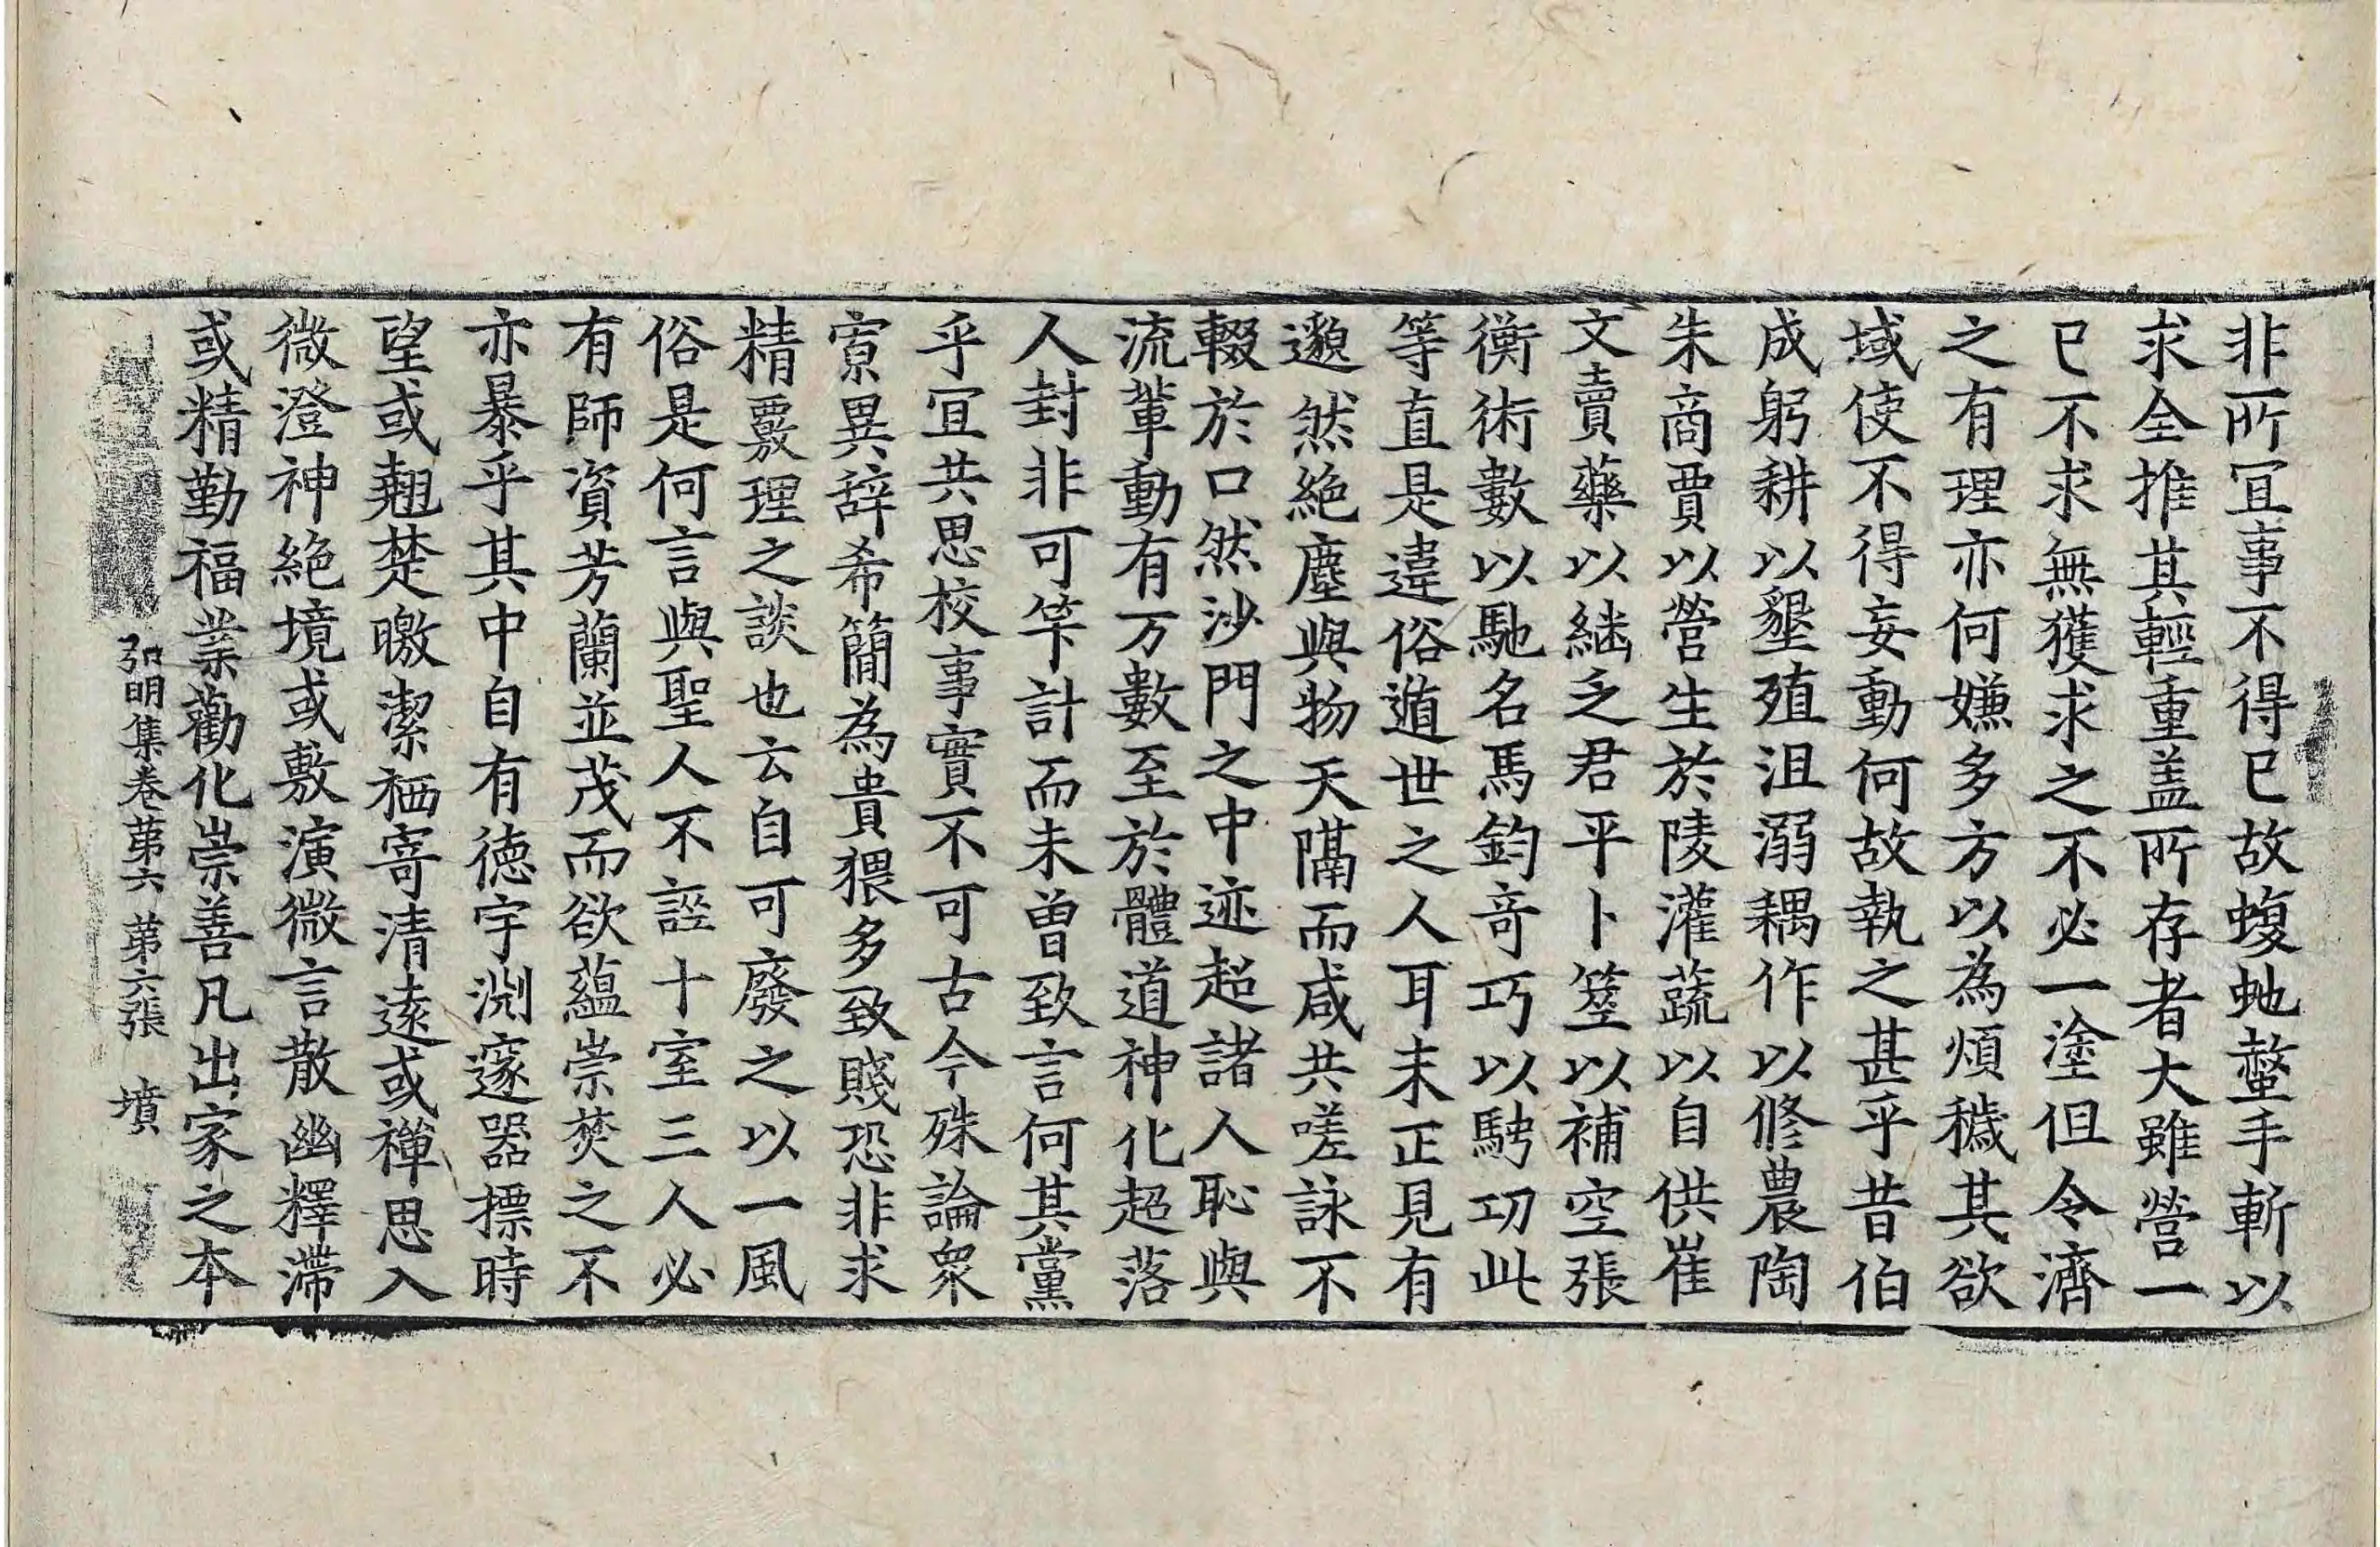 非所冝事不得已故蝮虵螫手斬以
求全推其輕重盖所存者大雖營一
已不求無獲求之不必一塗但令濟
之有理亦何嫌多方以為煩穢其欲
域使不得妄動何故執之甚乎昔伯
成躬耕以墾殖沮溺耦作以修農陶
朱商賈以營生於陵灌蔬以自供崔
文賣藥以継乏君平卜筮以補空張
衡術數以馳名馬鈞竒巧以騁功此
等直是違俗遁世之人耳未正見有
邈然絶塵與物天隔而咸共嗟詠不
輟於口然沙門之中迹超諸人恥與
流輩動有万數至於體道神化超落
人封非可筭計而未曽致言何其黨
乎冝共思校事實不可古今殊論衆
寮異辞希簡為貴猥多致賤恐非求
精覈理之談也云自可廢之以一風
俗是何言與聖人不誣十室三人必
有師資芳蘭並茂而欲藴崇焚之不
亦暴乎其中自有徳宇渊邃器摽時
望或翹楚曒潔栖寄清遠或禅思入
微澄神絶境或敷演微言散幽釋滯
或精勤福業勸化崇善凡出家之本
弘明集卷第六 第六張 墳